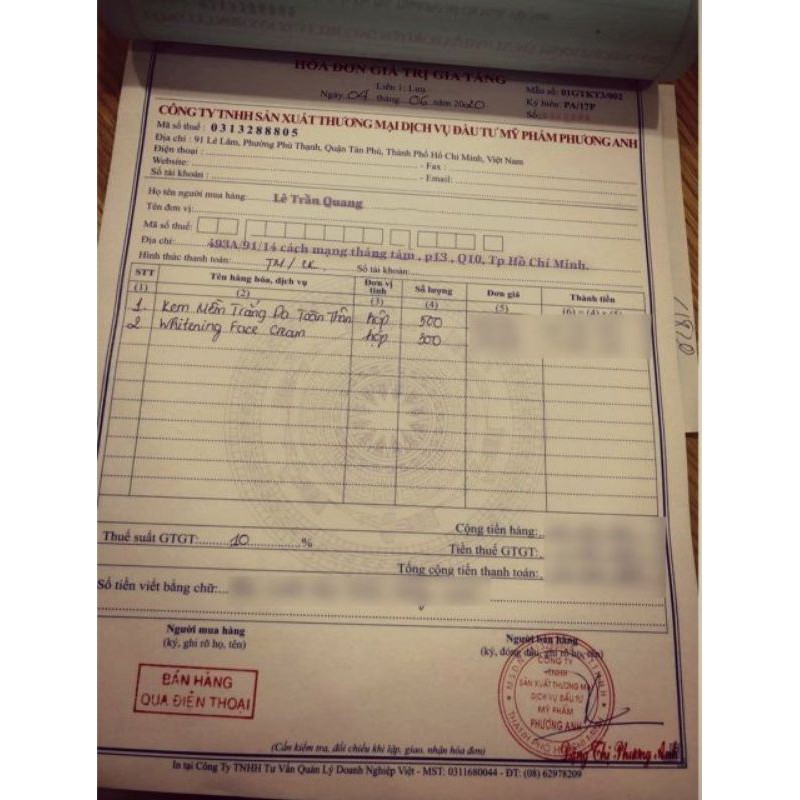 HÓA ĐƠN GIÁ TRỊ GIA TĂNG
Liên 1: Lưu
Ngày 04 tháng 06 năm 2020
Mẫu số: 01GTKT3/002
Ký hiệu: PA/17P
Số:
CÔNG TY TNHH SẢN XUẤT THƯƠNG MẠI DỊCH VỤ ĐẦU TƯ MỸ PHẨM PHƯƠNG ANH
Mã số thuế : 0313288805
Địa chỉ : 91 Lê Lâm, Phường Phú Thạnh, Quận Tân Phú, Thành Phố Hồ Chí Minh, Việt Nam
Điện thoại : - Fax :
Website: - Email:
Số tài khoản :
Họ tên người mua hàng: Lê Trần Quang
Tên đơn vị:
Mã số thuế:
Địa chỉ: 493A/91/14 cách mạng tháng tám , p13 , Q10, Tp Hồ Chí Minh.
Hình thức thanh toán: TM/CK Số tài khoản:
STT Tên hàng hóa, dịch vụ Đơn vị tính Số lượng Đơn giá Thành tiền
(1) (2) (3) (4) (5) (6) = (4) x (5)
1. Kem Mềm Trắng Da Toàn Thân hộp 500
2 Whitening Face Cream hộp 300
Cộng tiền hàng:
Thuế suất GTGT: 10 % Tiền thuế GTGT:
Tổng cộng tiền thanh toán:
Số tiền viết bằng chữ:
Người mua hàng Người bán hàng
(ký, ghi rõ họ, tên) (ký, đóng dấu, ghi rõ họ, tên)
BÁN HÀNG
QUA ĐIỆN THOẠI
CÔNG TY
TNHH
SẢN XUẤT THƯƠNG MẠI
DỊCH VỤ ĐẦU TƯ
MỸ PHẨM
PHƯƠNG ANH
THÀNH PHỐ HỒ CHÍ MINH
Đặng Thị Phương Anh
(Cần kiểm tra, đối chiếu khi lập, giao, nhận hóa đơn)
In tại Công Ty TNHH Tư Vấn Quản Lý Doanh Nghiệp Việt - MST: 0311680044 - ĐT: (08) 62978209